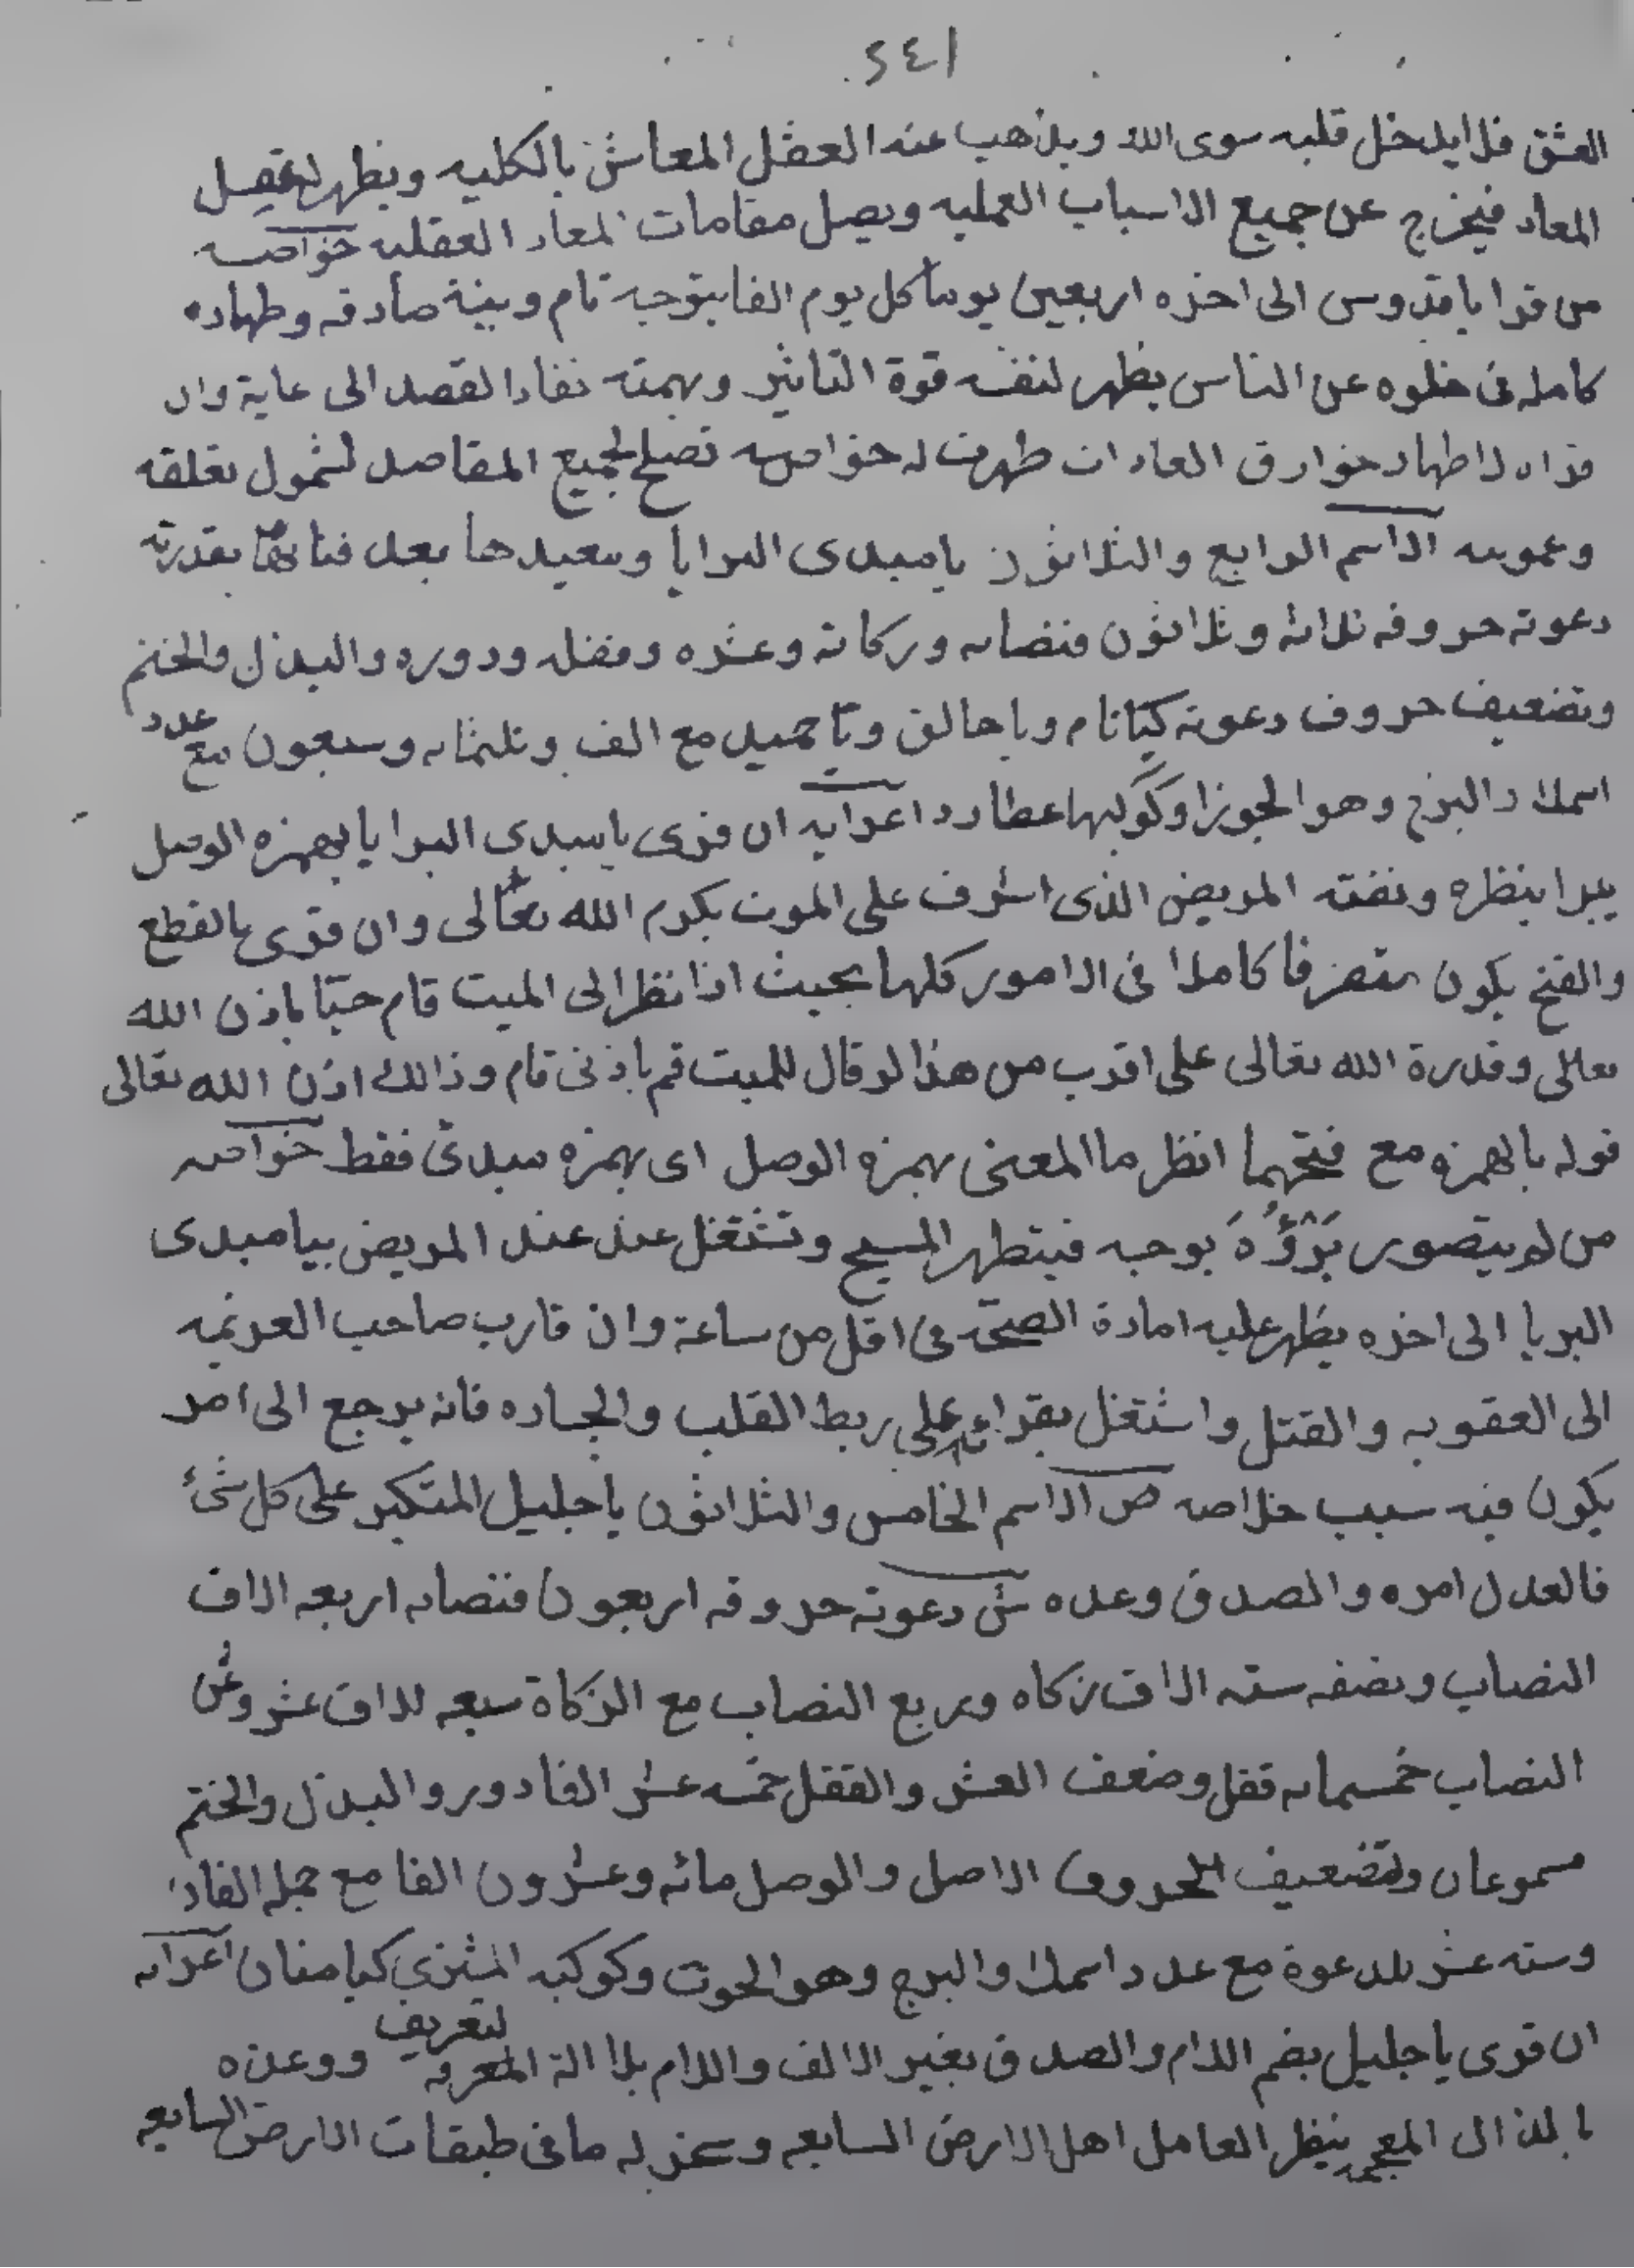 ٢٤١
العشق فلا يدخل قلبه سوى الله ويذهب عنه العقل المعاش بالكليه ويظهر له عقل
المعاد فيخرج عن جميع الاسباب العمليه ويصل مقامات المعاد العقليه خواصه
من قرا يا قدوس الى اخره اربعين يوما كل يوم الفا بتوجه تام وبنية صادقه وطهاره
كامله فى خلوه عن الناس يظهر لنفسه قوة التاثير وبهمته نفاد القصد الى غاية وان
قراه لاظهار خوارق العادات ظهرت له خواصه تصلح لجميع المقاصد لشمول تعلقه
وعمومه الاسم الرابع والثلاثون يا مبدى البرايا ومعيدها بعد فنائها بقدرته
دعوته حروفه ثلاثه وثلاثون فنصابه وزكاته وعشره وقفله ودوره والبذل والختم
وتضعيف حروف دعوته كياتام وياخالق وياحميد مع الف وثلثمايه وسبعون مع عدد
اسملاد البرج وهو الجوزا وكوكبها عطارد اعرابه ان قرى يا مبدى البرايا بهمزه الوصل
يبرا بنظره ونفثه المريض الذى اشرف على الموت بكرم الله تعالى وان قرى بالقطع
والفتح يكون متصرفا كاملا فى الامور كلها بحيث اذا نظر الى الميت قام حيا باذن الله
تعالى وقدرة الله تعالى على اقرب من هذا لو قال للميت قم باذنى قام وذالك اذن الله تعالى
قوله بالهمزه مع فتحهما انظر ما المعنى بهمزه الوصل اى بهمزه مبدئ فقط خواصه
من لم يتصور بَرْؤُهُ بوجه فيتطهر المسبح وتشتغل عند عند المريض بيا مبدى
البريا الى اخره يظهر عليه امارة الصحه فى اقل من ساعة وان قارب صاحب العزيمه
الى العقوبه والقتل واشتغل بقراءته على ربط القلب والجساره فانه يرجع الى امر
يكون فيه سبب خلاصه ص الاسم الخامس والثلاثون يا جليل المتكبر على كل شئ
فالعدل امره والصدق وعده ش دعوته حروفه اربعون فنصابه اربعه الاف
النصاب ونصفه سته الاف زكاه وربع النصاب مع الزكاة سبعه لااف عشر وثمن
النصاب خمسمايه قفل وضعف العشر والقفل خمسه عشر الفا دور والبذل والختم
مسموعان وتضعيف الحروف الاصل والوصل مائه وعشرون الفا مع جمله الفاد
وسته عشر للدعوة مع عدد اسملا والبرج وهو الحوت وكوكبه المشترى كيامنان اعرابه
ان قرى يا جليل بضم اللام والصدق بغير الالف واللام بلا الة المعرفه لتعريف ووعده
بالذال المعجمه ينظر العامل اهل الارض السابعه وسخر له ما فى طبقات الارض السابعه